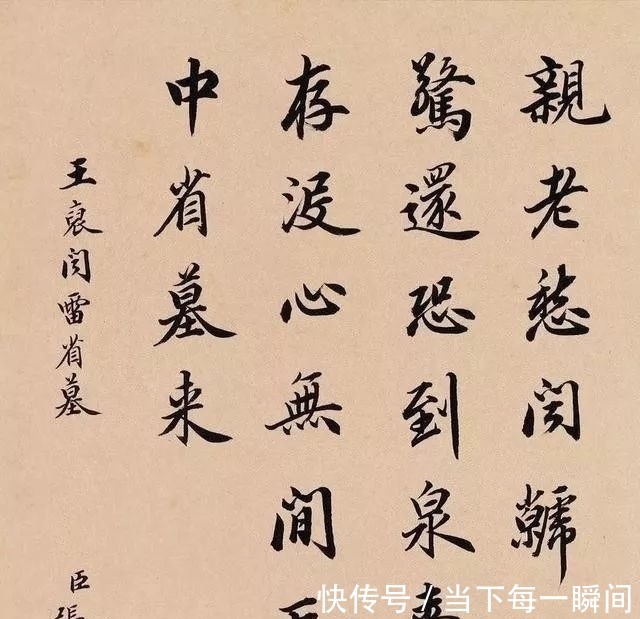 親老愁闻虩
驚還恐到泉
存没心無間
中省墓来
王裒闻雷省墓
臣張
快传号/当下每一瞬间